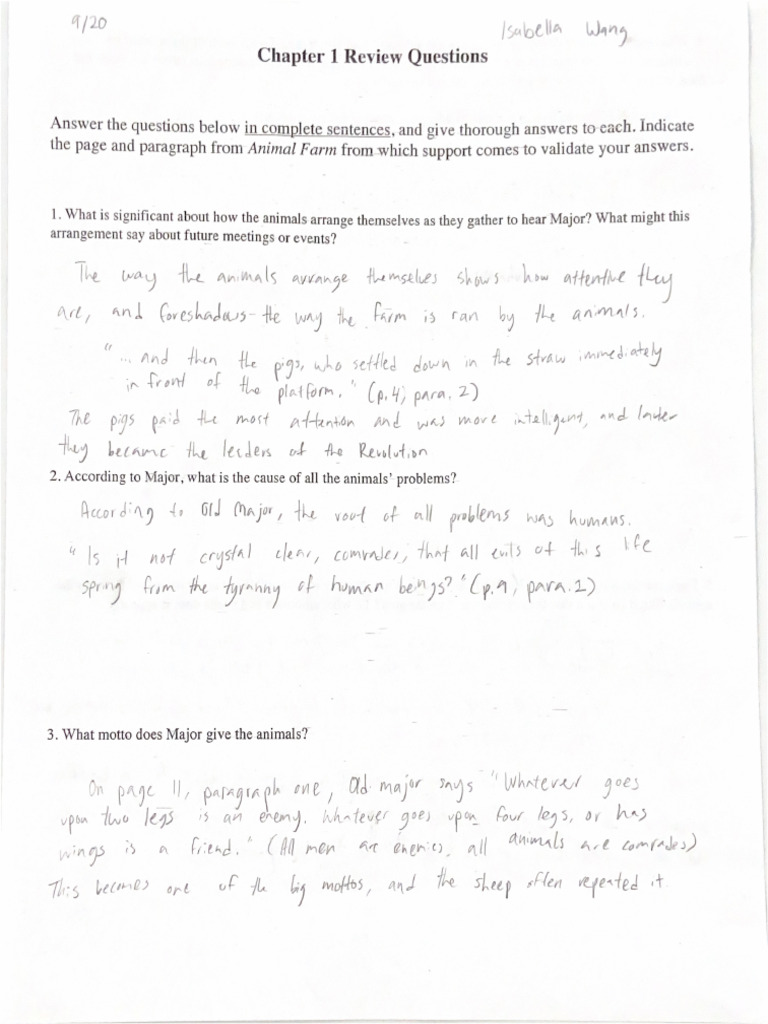 9/20
Isabella Wang
Chapter 1 Review Questions
Answer the questions below in complete sentences, and give thorough answers to each. Indicate
the page and paragraph from Animal Farm from which support comes to validate your answers.
1. What is significant about how the animals arrange themselves as they gather to hear Major? What might this
arrangement say about future meetings or events?
The way the animals arrange themselves shows how attentive they
are, and foreshadows the way the farm is ran by the animals.
"... and then the pigs, who settled down in the straw immediately
in front of the platform." (p.4, para. 2)
The pigs paid the most attention and was more intelligent, and later
they became the leaders of the Revolution
2. According to Major, what is the cause of all the animals' problems?
According to Old Major, the root of all problems was humans.
"Is it not crystal clear, comrades, that all evils of this life
spring from the tyranny of human beings?" (p.9, para.1)
3. What motto does Major give the animals?
On page 11, paragraph one, Old major says "Whatever goes
upon two legs is an enemy. Whatever goes upon four legs, or has
wings is a friend." (All men are enemies, all animals are comrades)
This becomes one of the big mottos, and the sheep often repeated it.